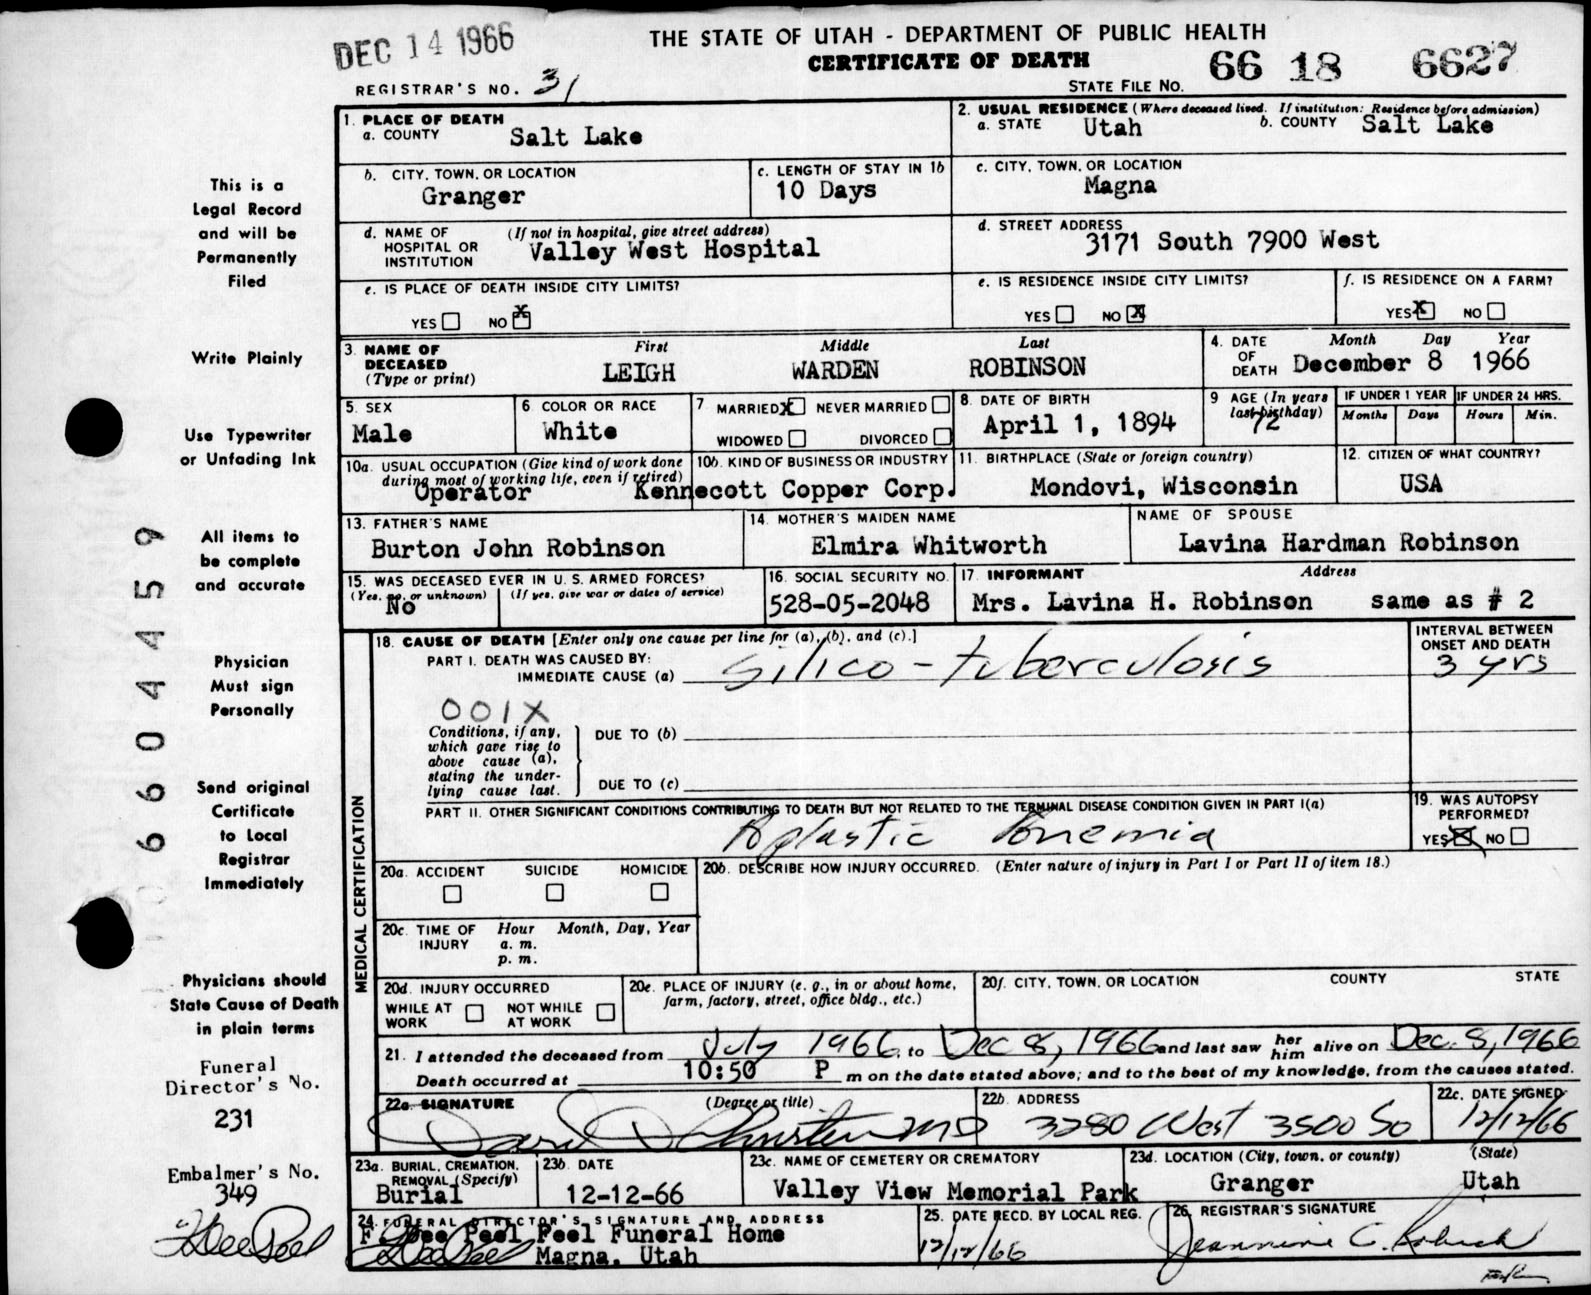 DEC 14 1966
THE STATE OF UTAH - DEPARTMENT OF PUBLIC HEALTH
CERTIFICATE OF DEATH
66 18 6627
REGISTRAR'S NO. 31
STATE FILE NO.
1. PLACE OF DEATH
a. COUNTY Salt Lake
2. USUAL RESIDENCE (Where deceased lived. If institution: Residence before admission)
a. STATE Utah b. COUNTY Salt Lake
b. CITY, TOWN, OR LOCATION
Granger
c. LENGTH OF STAY IN 1b
10 Days
c. CITY, TOWN, OR LOCATION
Magna
d. NAME OF HOSPITAL OR INSTITUTION (If not in hospital, give street address)
Valley West Hospital
d. STREET ADDRESS
3171 South 7900 West
e. IS PLACE OF DEATH INSIDE CITY LIMITS?
YES NO X
e. IS RESIDENCE INSIDE CITY LIMITS?
YES NO X
f. IS RESIDENCE ON A FARM?
YES X NO
3. NAME OF DECEASED (Type or print)
First Middle Last
LEIGH WARDEN ROBINSON
4. DATE OF DEATH
Month Day Year
December 8 1966
5. SEX
Male
6 COLOR OR RACE
White
7 MARRIED X NEVER MARRIED
WIDOWED DIVORCED
8. DATE OF BIRTH
April 1, 1894
9 AGE (In years last birthday)
72
IF UNDER 1 YEAR
Months Days
IF UNDER 24 HRS.
Hours Min.
10a. USUAL OCCUPATION (Give kind of work done during most of working life, even if retired)
Operator
10b. KIND OF BUSINESS OR INDUSTRY
Kennecott Copper Corp.
11. BIRTHPLACE (State or foreign country)
Mondovi, Wisconsin
12. CITIZEN OF WHAT COUNTRY?
USA
13. FATHER'S NAME
Burton John Robinson
14. MOTHER'S MAIDEN NAME
Elmira Whitworth
NAME OF SPOUSE
Lavina Hardman Robinson
15. WAS DECEASED EVER IN U. S. ARMED FORCES?
(Yes, no, or unknown) (If yes, give war or dates of service)
No
16. SOCIAL SECURITY NO.
528-05-2048
17. INFORMANT Address
Mrs. Lavina H. Robinson same as # 2
18. CAUSE OF DEATH [Enter only one cause per line for (a), (b), and (c).]
PART I. DEATH WAS CAUSED BY:
IMMEDIATE CAUSE (a) Silico-tuberculosis
INTERVAL BETWEEN ONSET AND DEATH
3 yrs
001X
Conditions, if any, which gave rise to above cause (a), stating the underlying cause last.
DUE TO (b)
DUE TO (c)
PART II. OTHER SIGNIFICANT CONDITIONS CONTRIBUTING TO DEATH BUT NOT RELATED TO THE TERMINAL DISEASE CONDITION GIVEN IN PART I(a)
Aplastic Anemia
19. WAS AUTOPSY PERFORMED?
YES X NO
MEDICAL CERTIFICATION
20a. ACCIDENT SUICIDE HOMICIDE
20b. DESCRIBE HOW INJURY OCCURRED. (Enter nature of injury in Part I or Part II of item 18.)
20c. TIME OF INJURY Hour Month, Day, Year
a. m.
p. m.
20d. INJURY OCCURRED
WHILE AT WORK NOT WHILE AT WORK
20e. PLACE OF INJURY (e. g., in or about home, farm, factory, street, office bldg., etc.)
20f. CITY, TOWN, OR LOCATION COUNTY STATE
21. I attended the deceased from July 1966, to Dec 8, 1966 and last saw her him alive on Dec. 8, 1966
Death occurred at 10:50 P m on the date stated above; and to the best of my knowledge, from the causes stated.
22a. SIGNATURE (Degree or title)
MD
22b. ADDRESS
3280 West 3500 So
22c. DATE SIGNED
12/12/66
23a. BURIAL, CREMATION, REMOVAL (Specify)
Burial
23b. DATE
12-12-66
23c. NAME OF CEMETERY OR CREMATORY
Valley View Memorial Park
23d. LOCATION (City, town, or county) (State)
Granger Utah
24. FUNERAL DIRECTOR'S SIGNATURE AND ADDRESS
F. Dee Peel Peel Funeral Home
Magna, Utah
25. DATE RECD. BY LOCAL REG.
12/12/66
26. REGISTRAR'S SIGNATURE
Jeannine C.
This is a
Legal Record
and will be
Permanently
Filed
Write Plainly
Use Typewriter
or Unfading Ink
All items to
be complete
and accurate
Physician
Must sign
Personally
Send original
Certificate
to Local
Registrar
Immediately
Physicians should
State Cause of Death
in plain terms
Funeral
Director's No.
231
Embalmer's No.
349
F Dee Peel
6604459